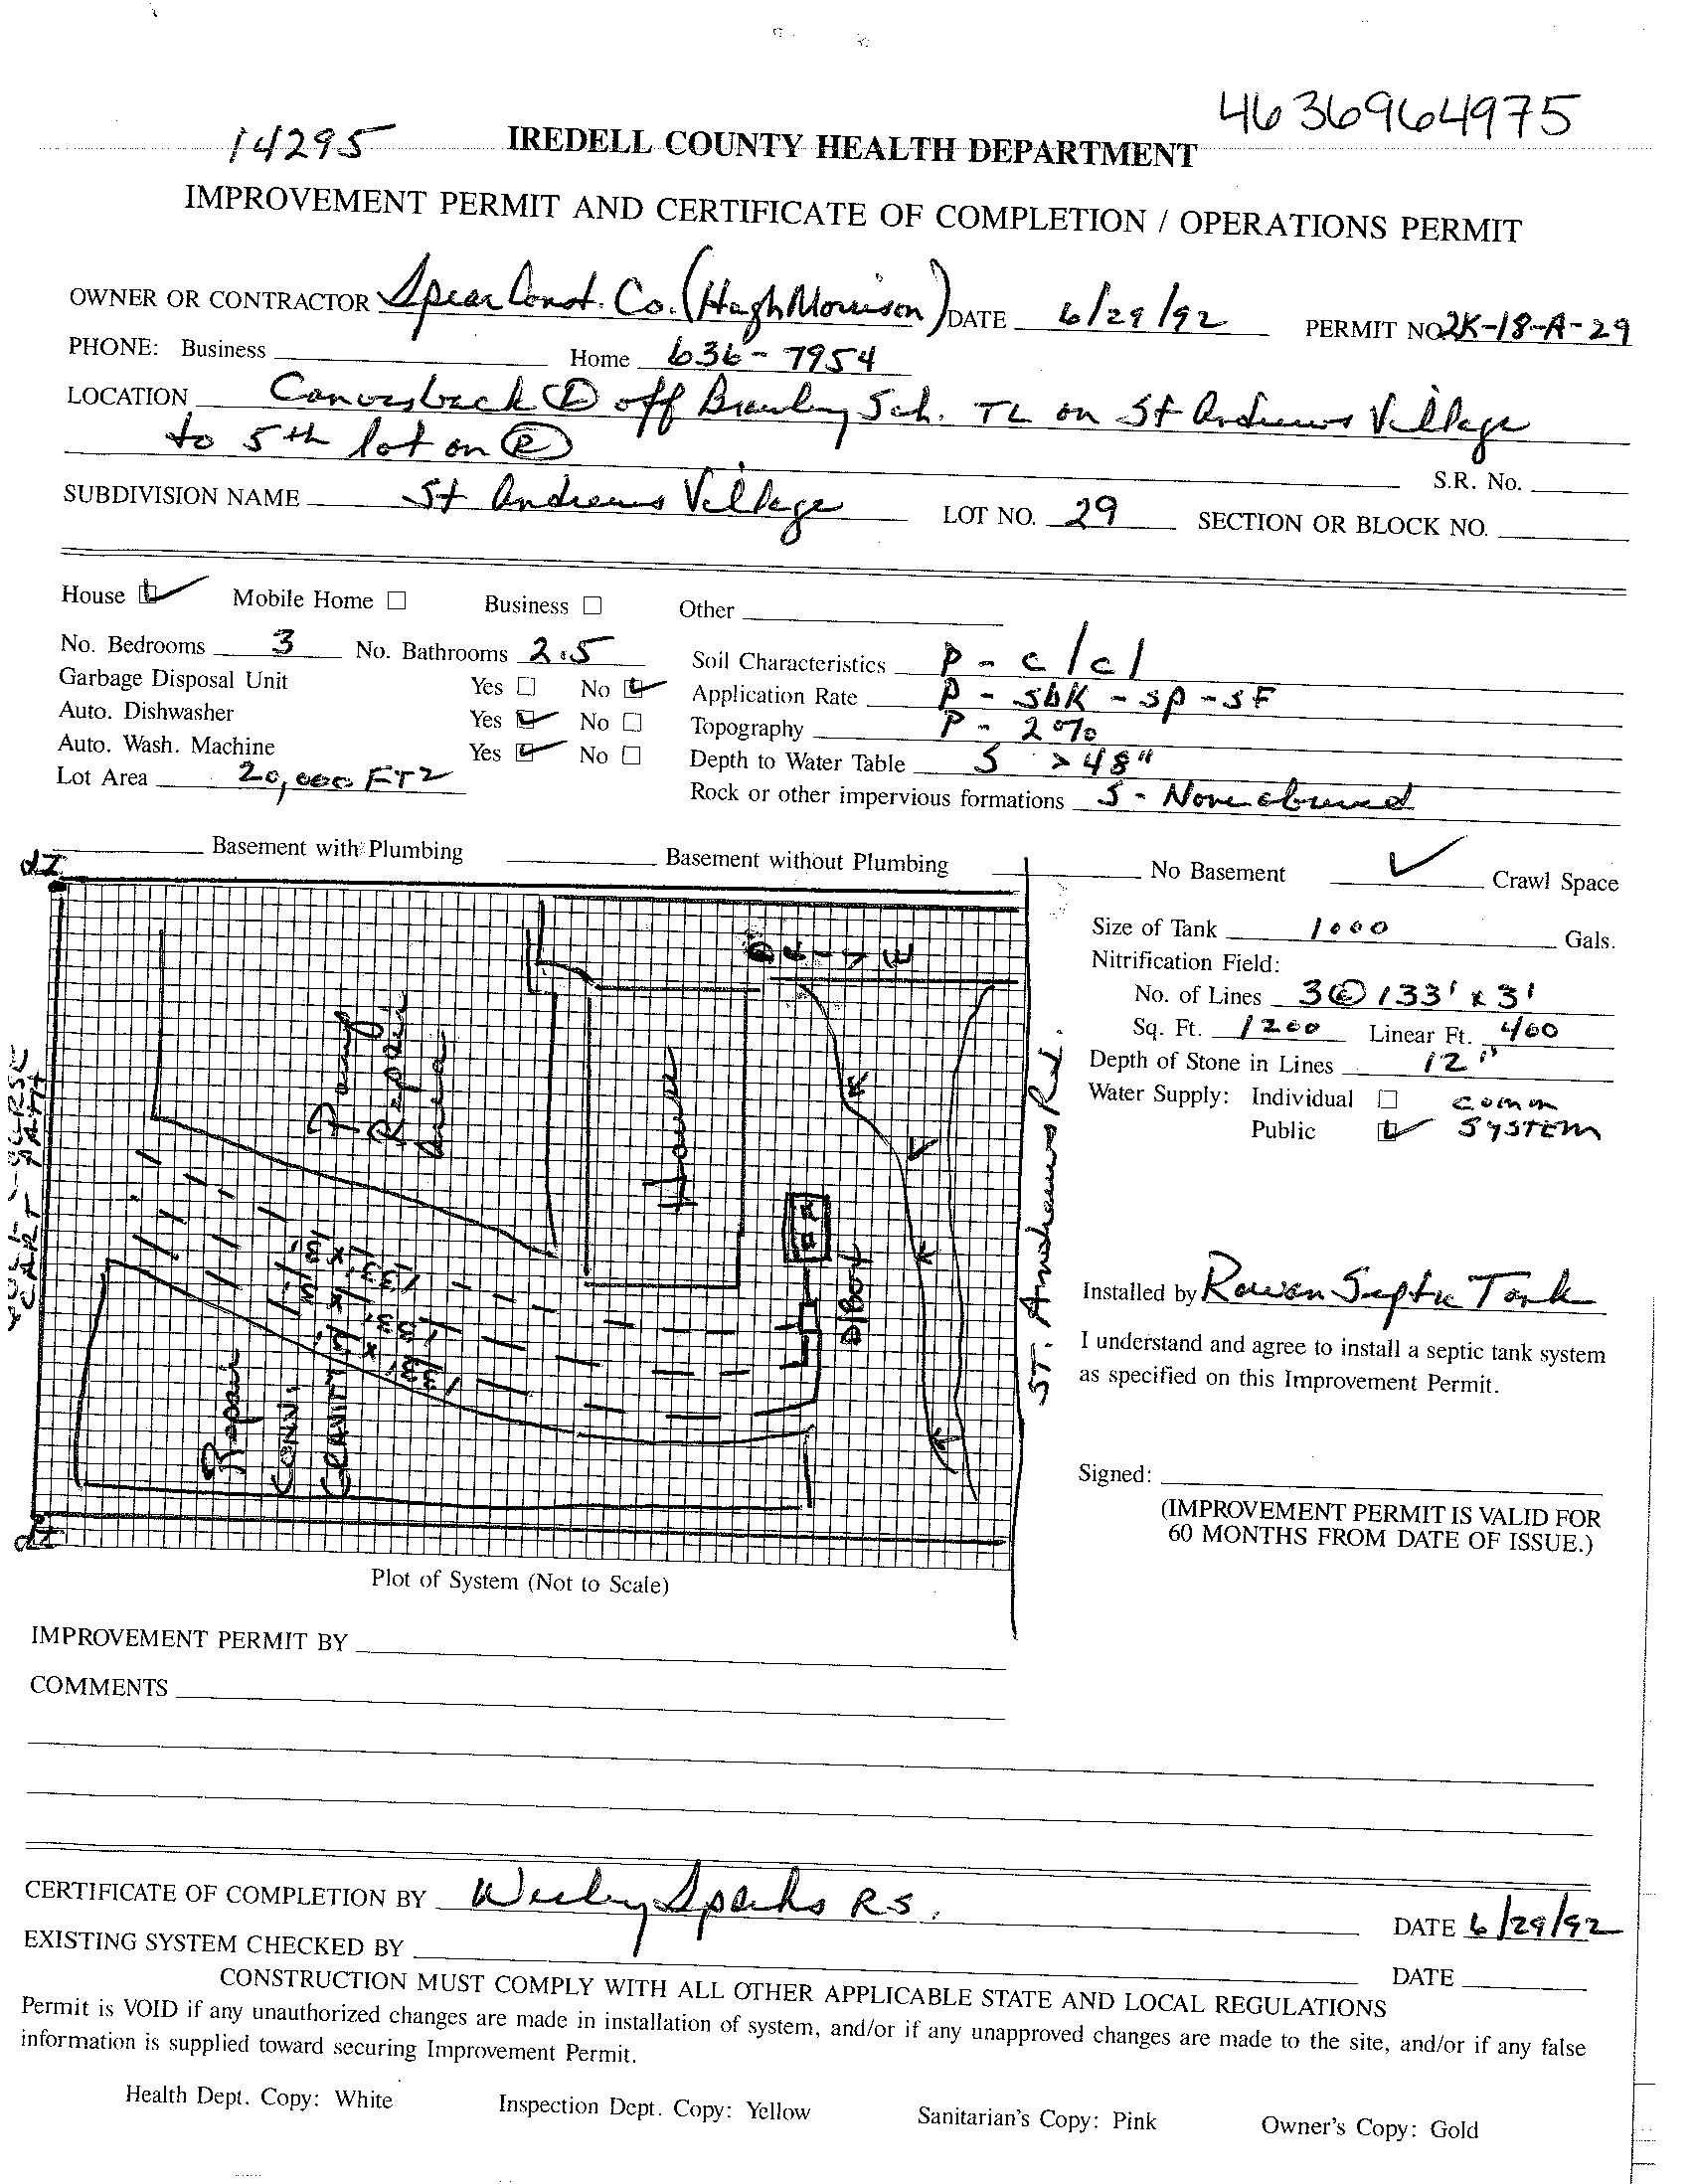 4636964975
14295 IREDELL COUNTY HEALTH DEPARTMENT
IMPROVEMENT PERMIT AND CERTIFICATE OF COMPLETION / OPERATIONS PERMIT
OWNER OR CONTRACTOR Spear Const. Co. (Hugh Morrison) DATE 6/29/92 PERMIT NO. 2K-18-A-29
PHONE: Business Home 636-7954
LOCATION Canvasback off Brawley Sch. TL on St Andrews Village
to 5th lot on R
S.R. No.
SUBDIVISION NAME St Andrews Village LOT NO. 29 SECTION OR BLOCK NO.
House Mobile Home Business Other
No. Bedrooms 3 No. Bathrooms 2.5 Soil Characteristics P - c/cl
Garbage Disposal Unit Yes No Application Rate P - sbk - sp - sf
Auto. Dishwasher Yes No Topography P - 2%
Auto. Wash. Machine Yes No Depth to Water Table S >48"
Lot Area 20,000 FT2 Rock or other impervious formations S - None observed
Basement with Plumbing Basement without Plumbing No Basement Crawl Space
Size of Tank 1000 Gals.
Nitrification Field:
No. of Lines 3 @ 133' x 3'
Sq. Ft. 1200 Linear Ft. 400
Depth of Stone in Lines 12"
Water Supply: Individual comm
Public SYSTEM
Repair
Area
House
D/Box
133' x 3'
133' x 3'
133' x 3'
Repair
CONV.
GRAVITY
CART PATH
ST. Andrews Rd.
Installed by Rowan Septic Tank
I understand and agree to install a septic tank system
as specified on this Improvement Permit.
Signed:
(IMPROVEMENT PERMIT IS VALID FOR
60 MONTHS FROM DATE OF ISSUE.)
Plot of System (Not to Scale)
IMPROVEMENT PERMIT BY
COMMENTS
CERTIFICATE OF COMPLETION BY Wesley Sparks RS. DATE 6/29/92
EXISTING SYSTEM CHECKED BY DATE
CONSTRUCTION MUST COMPLY WITH ALL OTHER APPLICABLE STATE AND LOCAL REGULATIONS
Permit is VOID if any unauthorized changes are made in installation of system, and/or if any unapproved changes are made to the site, and/or if any false
information is supplied toward securing Improvement Permit.
Health Dept. Copy: White Inspection Dept. Copy: Yellow Sanitarian's Copy: Pink Owner's Copy: Gold